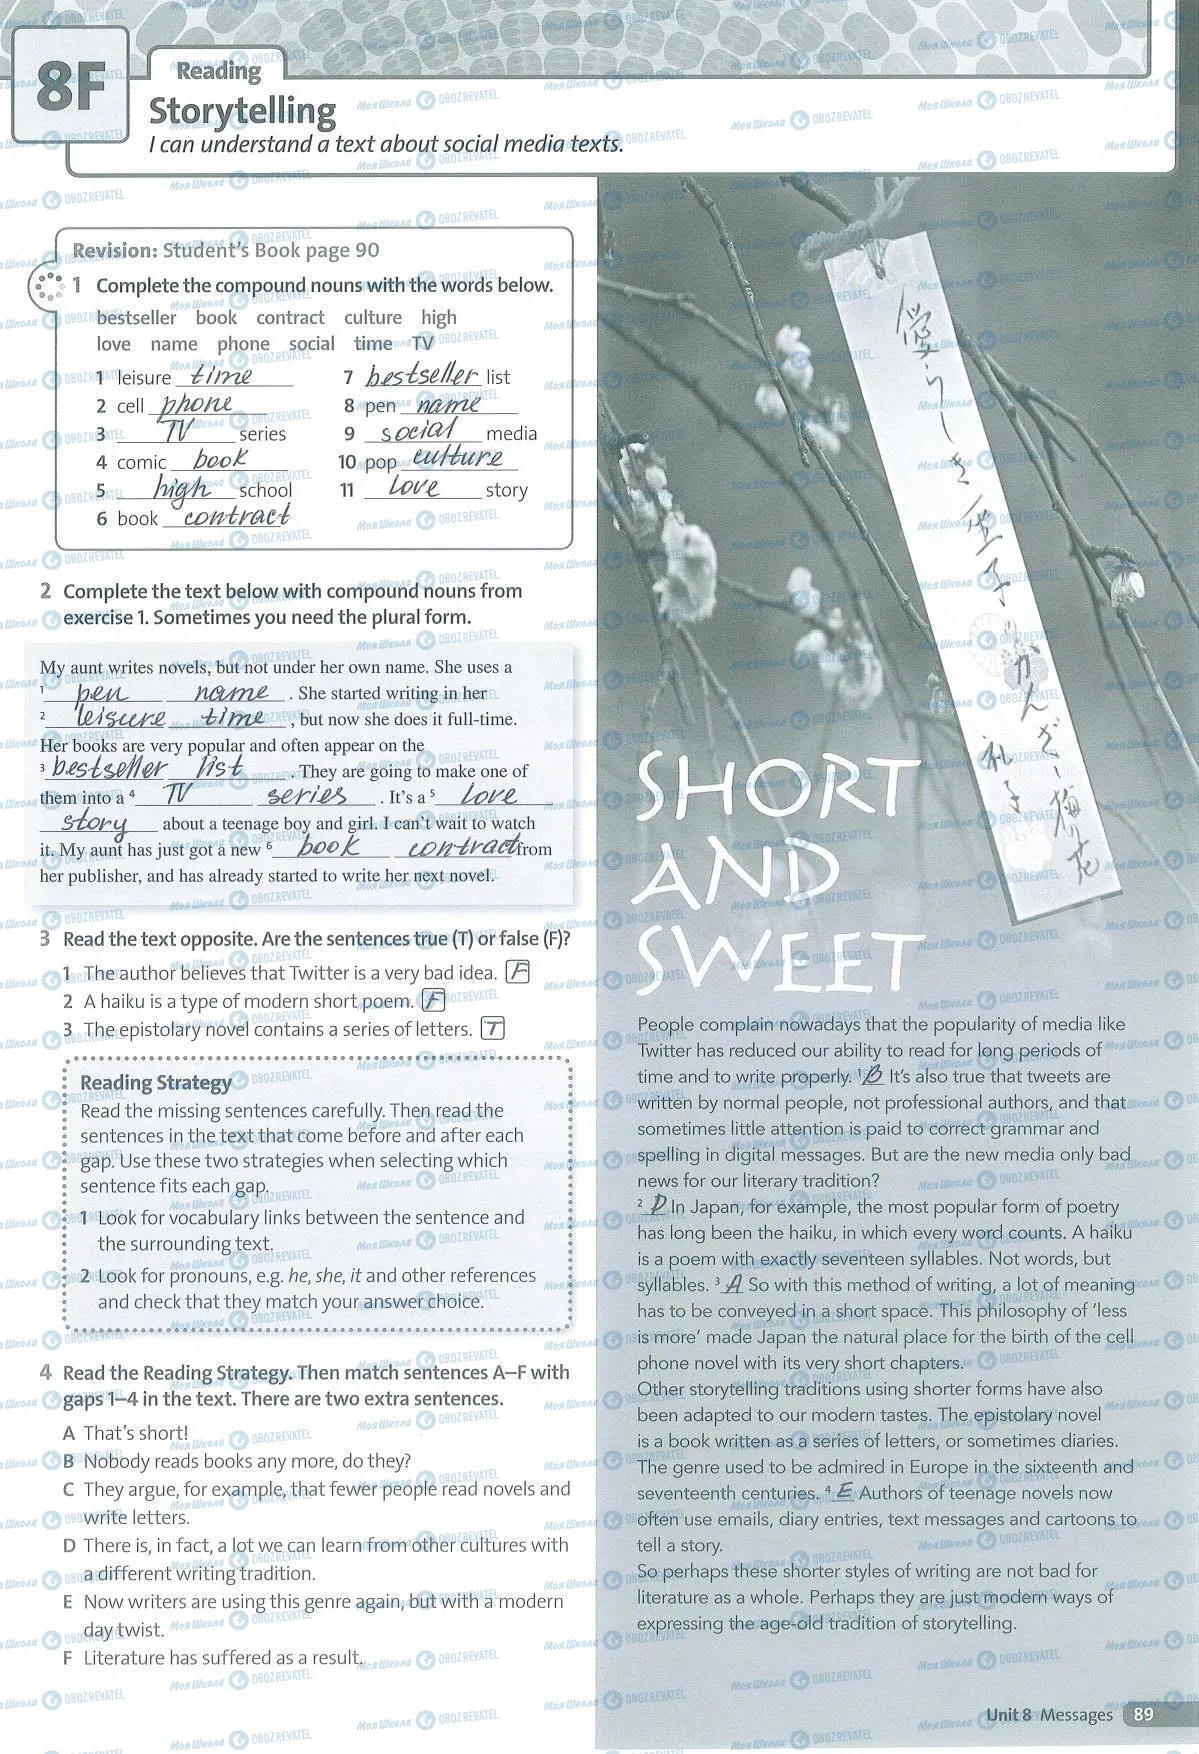 8F
Reading
Storytelling
I can understand a text about social media texts.
Revision: Student's Book page 90
1 Complete the compound nouns with the words below.
bestseller book contract culture high
love name phone social time TV
1 leisure time
2 cell phone
3 TV series
4 comic book
5 high school
6 book contract
7 bestseller list
8 pen name
9 social media
10 pop culture
11 love story
2 Complete the text below with compound nouns from
exercise 1. Sometimes you need the plural form.
My aunt writes novels, but not under her own name. She uses a
1 pen name . She started writing in her
2 leisure time , but now she does it full-time.
Her books are very popular and often appear on the
3 bestseller list . They are going to make one of
them into a 4 TV series . It's a 5 love
story about a teenage boy and girl. I can't wait to watch
it. My aunt has just got a new 6 book contract from
her publisher, and has already started to write her next novel.
3 Read the text opposite. Are the sentences true (T) or false (F)?
1 The author believes that Twitter is a very bad idea. F
2 A haiku is a type of modern short poem. F
3 The epistolary novel contains a series of letters. T
Reading Strategy
Read the missing sentences carefully. Then read the
sentences in the text that come before and after each
gap. Use these two strategies when selecting which
sentence fits each gap.
1 Look for vocabulary links between the sentence and
the surrounding text.
2 Look for pronouns, e.g. he, she, it and other references
and check that they match your answer choice.
4 Read the Reading Strategy. Then match sentences A–F with
gaps 1–4 in the text. There are two extra sentences.
A That's short!
B Nobody reads books any more, do they?
C They argue, for example, that fewer people read novels and
write letters.
D There is, in fact, a lot we can learn from other cultures with
a different writing tradition.
E Now writers are using this genre again, but with a modern
day twist.
F Literature has suffered as a result.
SHORT
AND
SWEET
People complain nowadays that the popularity of media like
Twitter has reduced our ability to read for long periods of
time and to write properly. 1 B It's also true that tweets are
written by normal people, not professional authors, and that
sometimes little attention is paid to correct grammar and
spelling in digital messages. But are the new media only bad
news for our literary tradition?
2 D In Japan, for example, the most popular form of poetry
has long been the haiku, in which every word counts. A haiku
is a poem with exactly seventeen syllables. Not words, but
syllables. 3 A So with this method of writing, a lot of meaning
has to be conveyed in a short space. This philosophy of 'less
is more' made Japan the natural place for the birth of the cell
phone novel with its very short chapters.
Other storytelling traditions using shorter forms have also
been adapted to our modern tastes. The epistolary novel
is a book written as a series of letters, or sometimes diaries.
The genre used to be admired in Europe in the sixteenth and
seventeenth centuries. 4 E Authors of teenage novels now
often use emails, diary entries, text messages and cartoons to
tell a story.
So perhaps these shorter styles of writing are not bad for
literature as a whole. Perhaps they are just modern ways of
expressing the age-old tradition of storytelling.
Unit 8 Messages 89
Моя Школа OBOZREVATEL